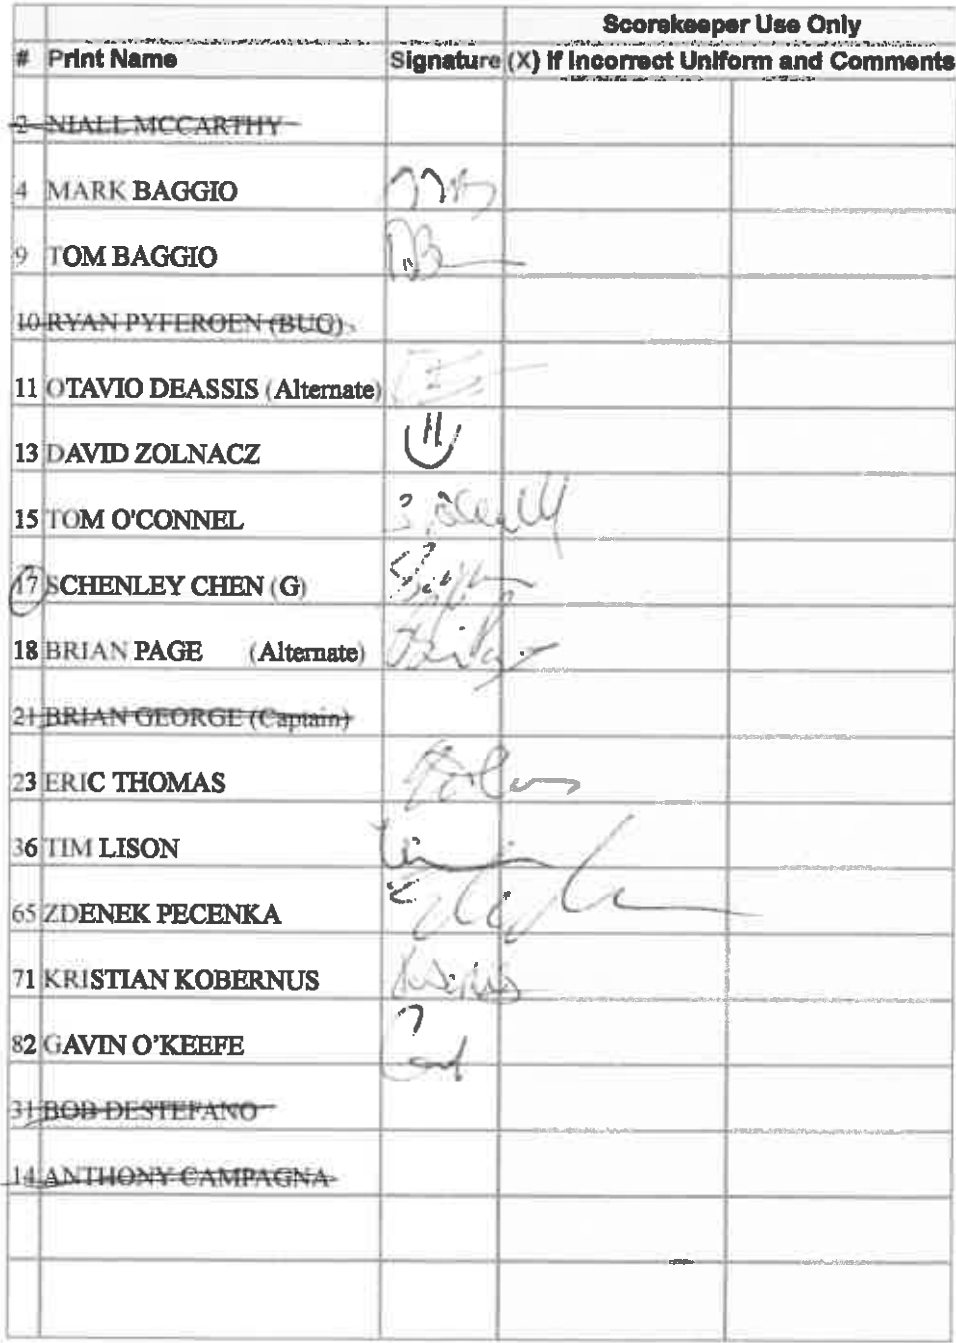 Scorekeeper Use Only
# Print Name Signature (X) If Incorrect Uniform and Comments
2 NIALL MCCARTHY
4 MARK BAGGIO
9 TOM BAGGIO
10 RYAN PYFEROEN (BUG)
11 OTAVIO DEASSIS (Alternate)
13 DAVID ZOLNACZ
15 TOM O'CONNEL
17 SCHENLEY CHEN (G)
18 BRIAN PAGE (Alternate)
21 BRIAN GEORGE (Captain)
23 ERIC THOMAS
36 TIM LISON
65 ZDENEK PECENKA
71 KRISTIAN KOBERNUS
82 GAVIN O’KEEFE
31 BOB DESTEFANO
14 ANTHONY CAMPAGNA